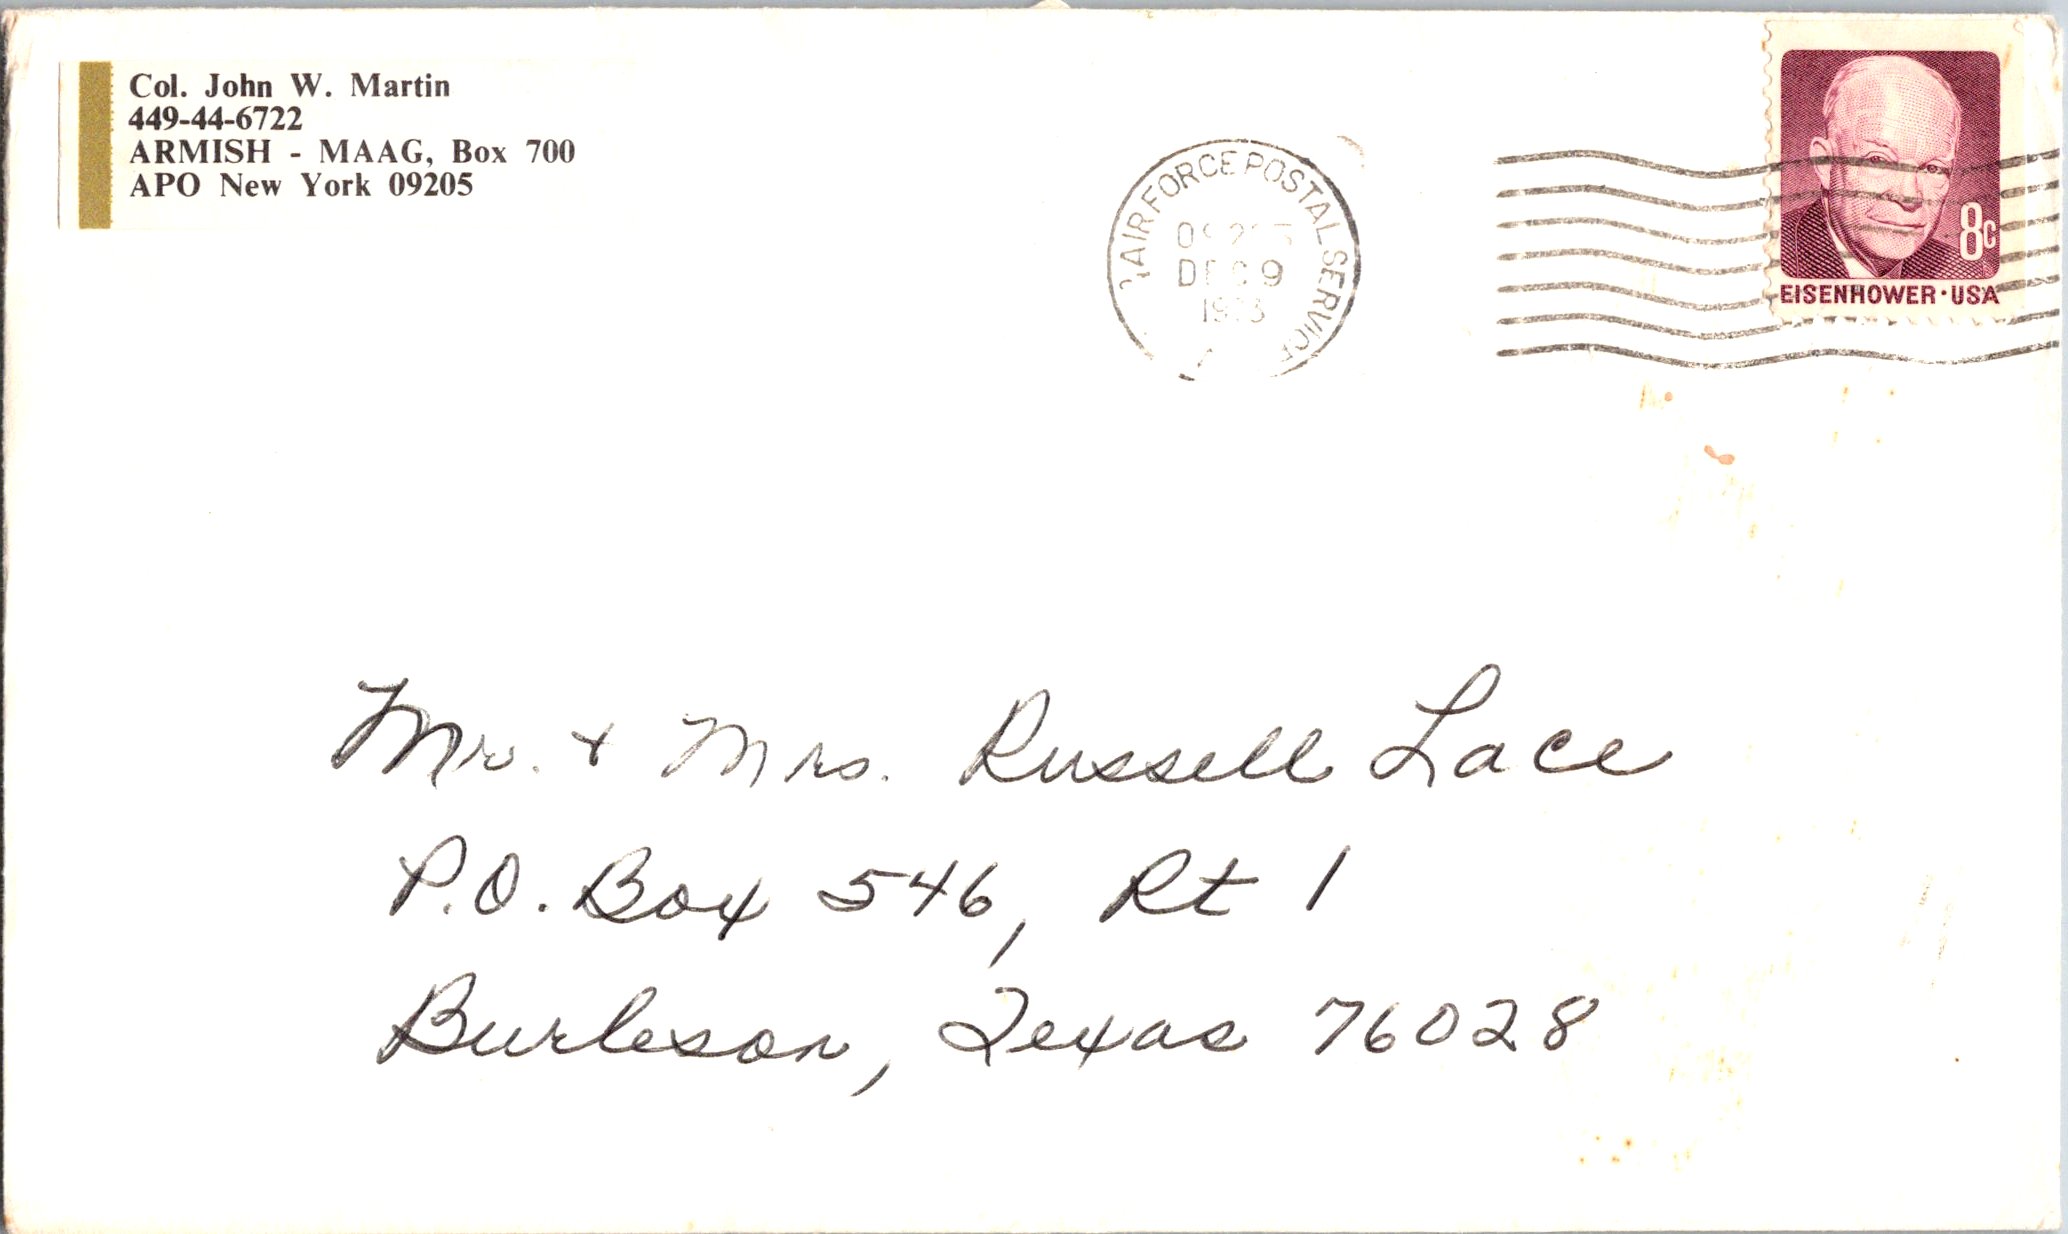 Col. John W. Martin
449-44-6722
ARMISH - MAAG, Box 700
APO New York 09205
AIR FORCE POSTAL SERVICE
DEC 9
1973
8c
EISENHOWER · USA
Mr. & Mrs. Russell Lace
P.O. Box 546, Rt 1
Burleson, Texas 76028